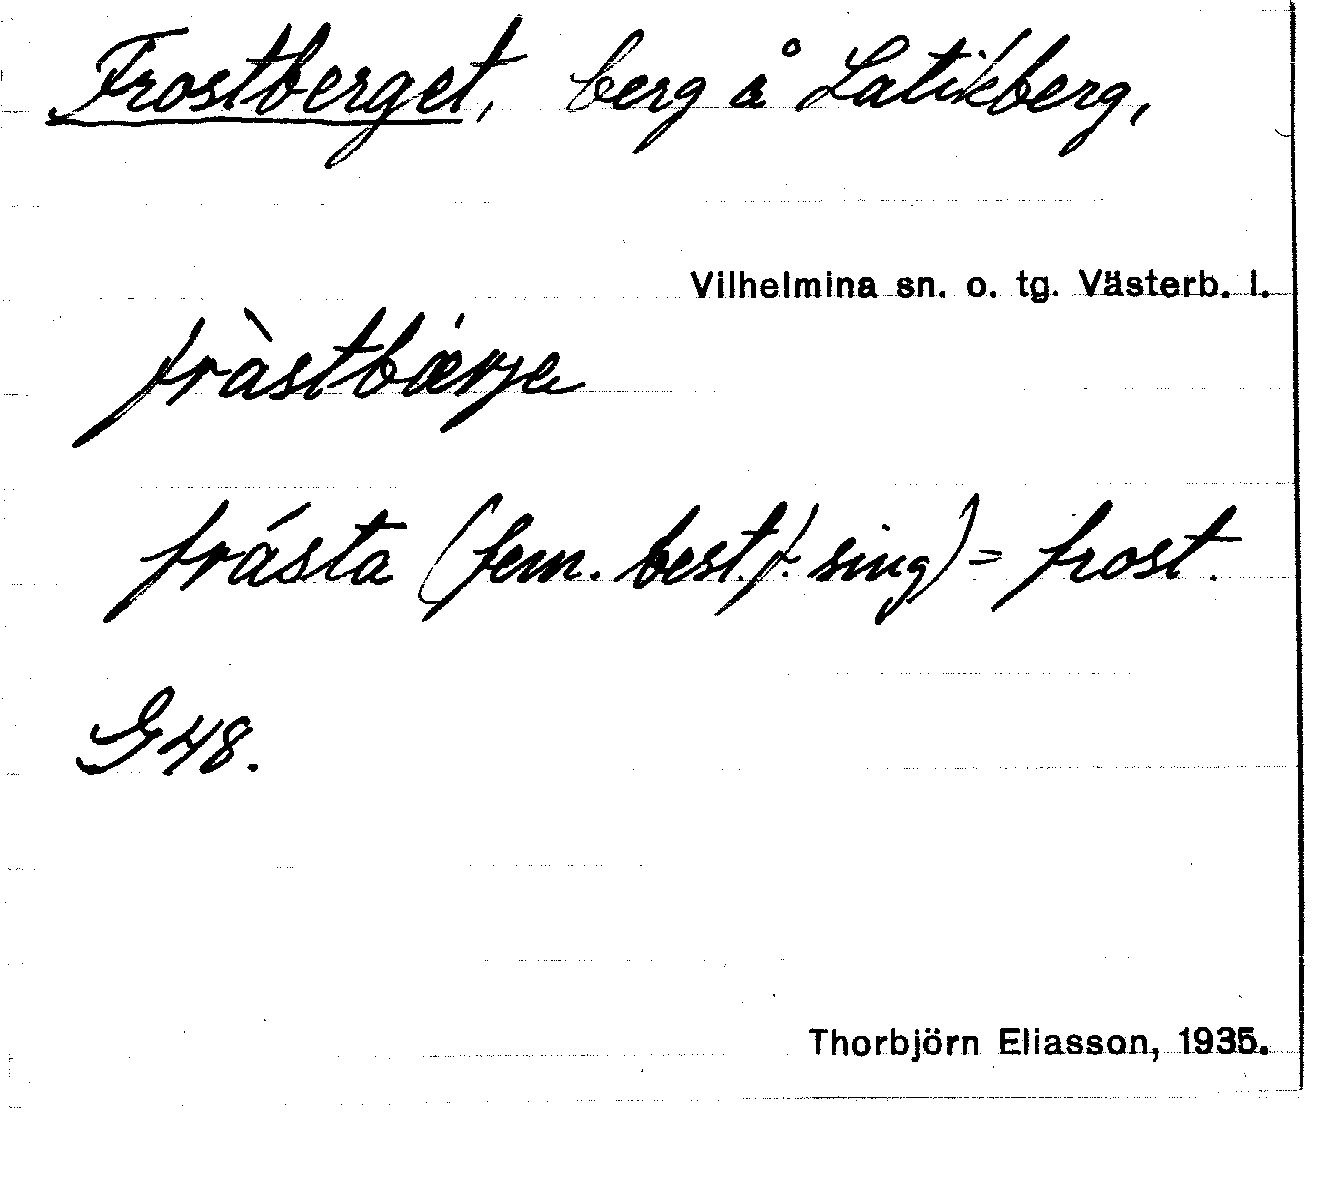 Frostberget, berg å Latikberg,
Vilhelmina sn. o. tg. Västerb. l.
fràstbǽrje
frásta (fem. best. f. sing) = frost.
G 48.
Thorbjörn Eliasson, 1935.